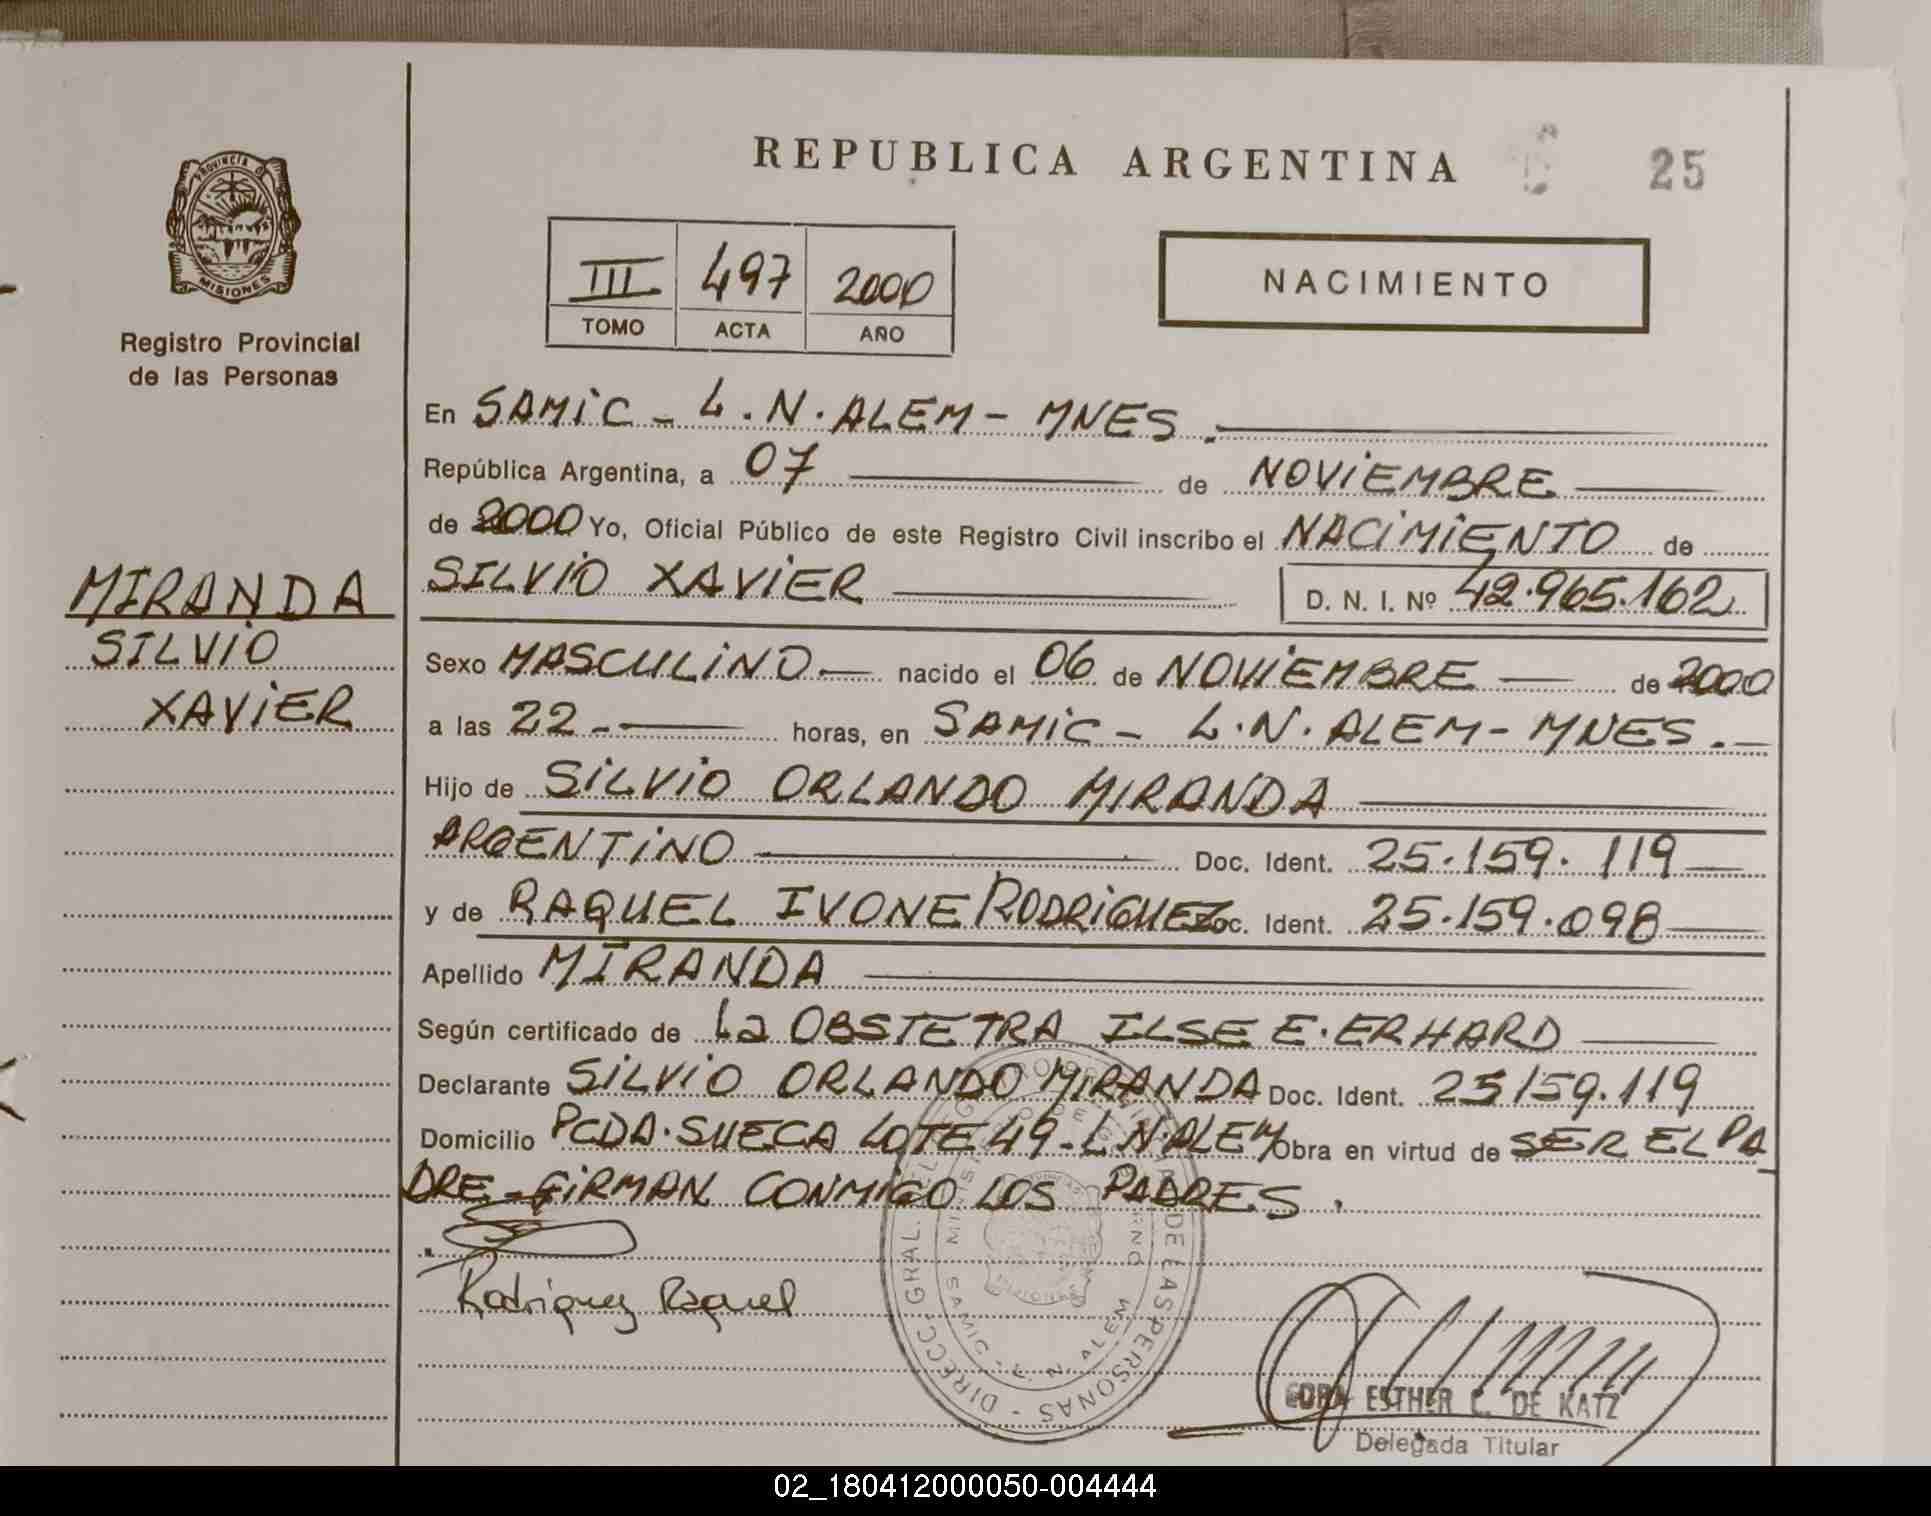 REPUBLICA ARGENTINA
25
PROVINCIA
MISIONES
Registro Provincial
de las Personas
III 497 2000
TOMO ACTA AÑO
NACIMIENTO
En SAMIC - L.N. ALEM - MNES.
República Argentina, a 07 de NOVIEMBRE
de 2000 Yo, Oficial Público de este Registro Civil inscribo el NACIMIENTO de
SILVIO XAVIER D. N. I. Nº 42.965.162
MIRANDA
SILVIO
XAVIER
Sexo MASCULINO nacido el 06 de NOVIEMBRE de 2000
a las 22 horas, en SAMIC - L.N. ALEM - MNES.
Hijo de SILVIO ORLANDO MIRANDA
ARGENTINO Doc. Ident. 25.159.119
y de RAQUEL IVONE RODRIGUEZ Doc. Ident. 25.159.098
Apellido MIRANDA
Según certificado de La OBSTETRA ILSE E. ERHARD
Declarante SILVIO ORLANDO MIRANDA Doc. Ident. 25159.119
Domicilio PCDA. SUECA LOTE 49 - L.N. ALEM Obra en virtud de SER EL PA
DRE - FIRMAN CONMIGO LOS PADRES.
Rodriguez Raquel
DIRECC. GRAL. DE LAS PERSONAS
SAMIC - L. N. ALEM
ESTHER C. DE KATZ
Delegada Titular
02_180412000050-004444